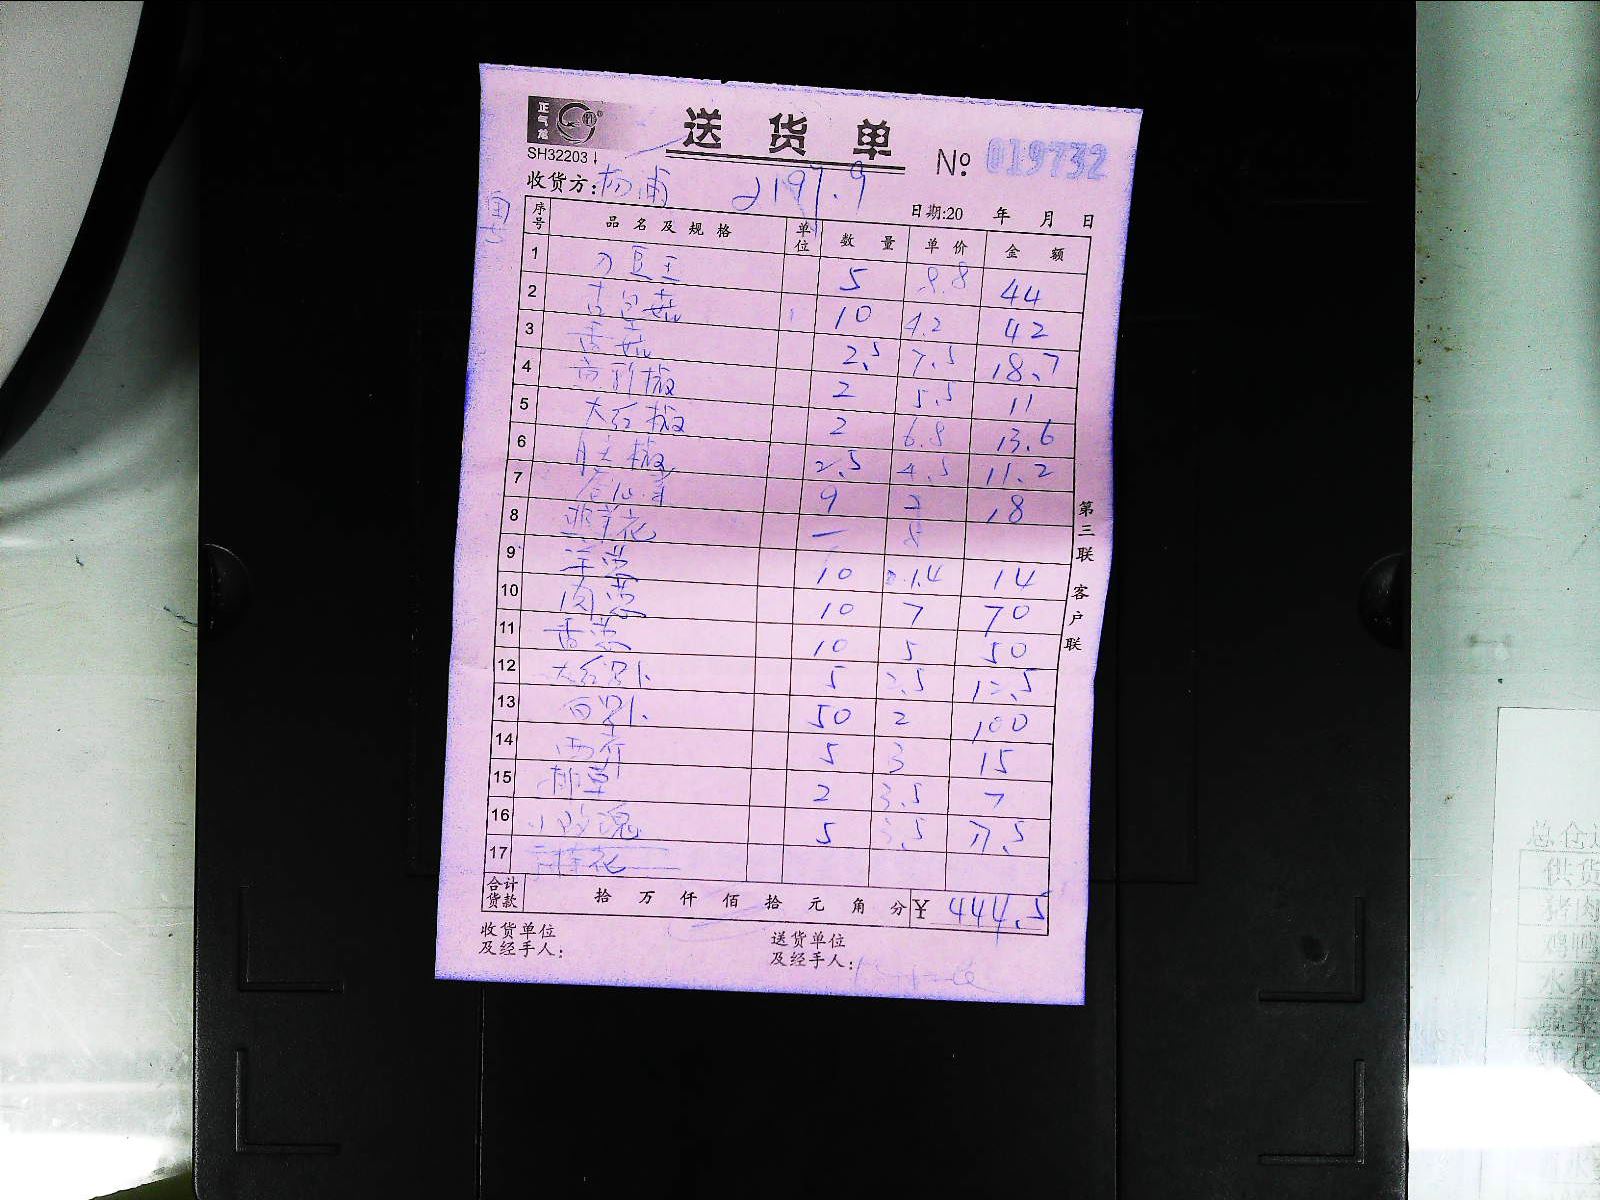 正气龙
送货单
SH32203
№ 019732
收货方: 杨浦 2197.9
日期:20 年 月 日
序号 品名及规格 单位 数量 单价 金额
1 刀豆王 5 8.8 44
2 10 4.2 42
3 香菇 2.5 7.5 18.7
4 椒 2 5.5 11
5 大红椒 2 6.8 13.6
6 椒 2.5 4.5 11.2
7 9 2 18
8 韭菜花 一 8
9 洋葱 10 1.4 14
10 肉葱 10 7 70
11 香葱 10 5 50
12 大红罗卜 5 2.5 12.5
13 白罗卜 50 2 100
14 西芹 5 3 15
15 2 3.5 7
16 小玫瑰 5 3.5 17.5
17
合计货款 拾 万 仟 佰 拾 元 角 分 ¥ 444.5
第三联 客户联
收货单位及经手人:
送货单位及经手人: